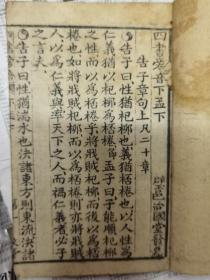 四書音下孟下
告子章句上凡二十章
告子曰性猶杞柳也義猶桮棬也以人性為
仁義猶以杞柳為桮棬孟子曰子能順杞柳
之性而以為桮棬乎將戕賊杞柳而後以為桮
棬也如將戕賊杞柳而以為桮棬則亦將戕賊
人以為仁義與率天下之人而禍仁義者必子
之言夫
告子曰性猶湍水也決諸東方則東流決諸